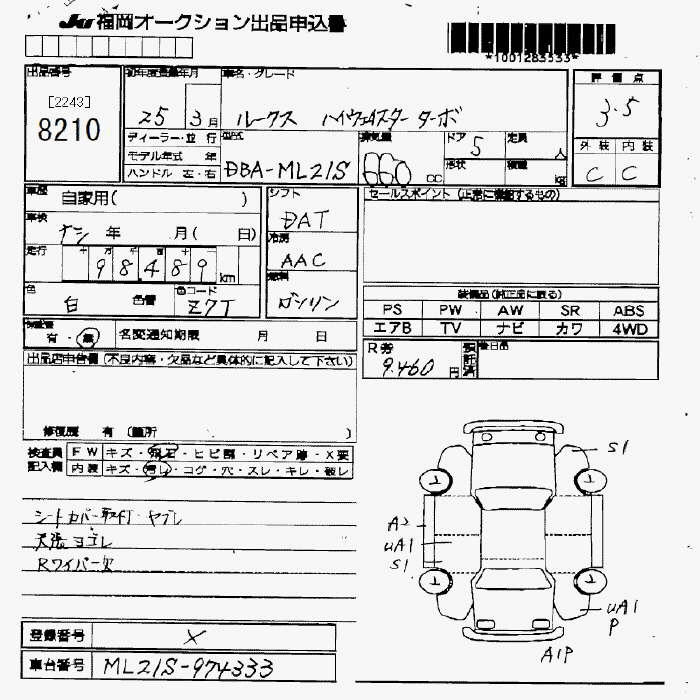 JU 福岡オークション出品申込書
*1001283533*
出品番号
[2243]
8210
初年度登録年月
25 3月
車名・グレード
ルークス ハイウェイスター ターボ
評価点
3.5
ディーラー・並行
モデル年式 年
ハンドル 左・右
型式
DBA-ML21S
排気量
660 cc
ドア 5
定員 人
形状
積載 kg
外装 内装
C C
車歴 自家用( )
車検 ナシ 年 月( 日)
走行 十 万 千 百 十 一
98,489 km
色 白 色替
色コード Z7T
シフト DAT
冷房 AAC
燃料 ガソリン
セールスポイント (正常に機能するもの)
装備品(純正品に限る)
PS PW AW SR ABS
エアB TV ナビ カワ 4WD
有・無 名変通知期限 月 日
R券 9,460 円
預託済
後日品
出品店申告欄 (不良内容・欠品など具体的に記入して下さい)
修復歴 有 (箇所 )
検査員記入欄
FW キズ・飛石・ヒビ割・リペア跡・X要
内装 キズ・汚レ・コゲ・穴・スレ・キレ・破レ
シートカバー取付・ヤブレ
天張ヨゴレ
Rワイパー欠
S1
A2
uA1
S1
uA1
P
A1P
登録番号 X
車台番号 ML21S-974333